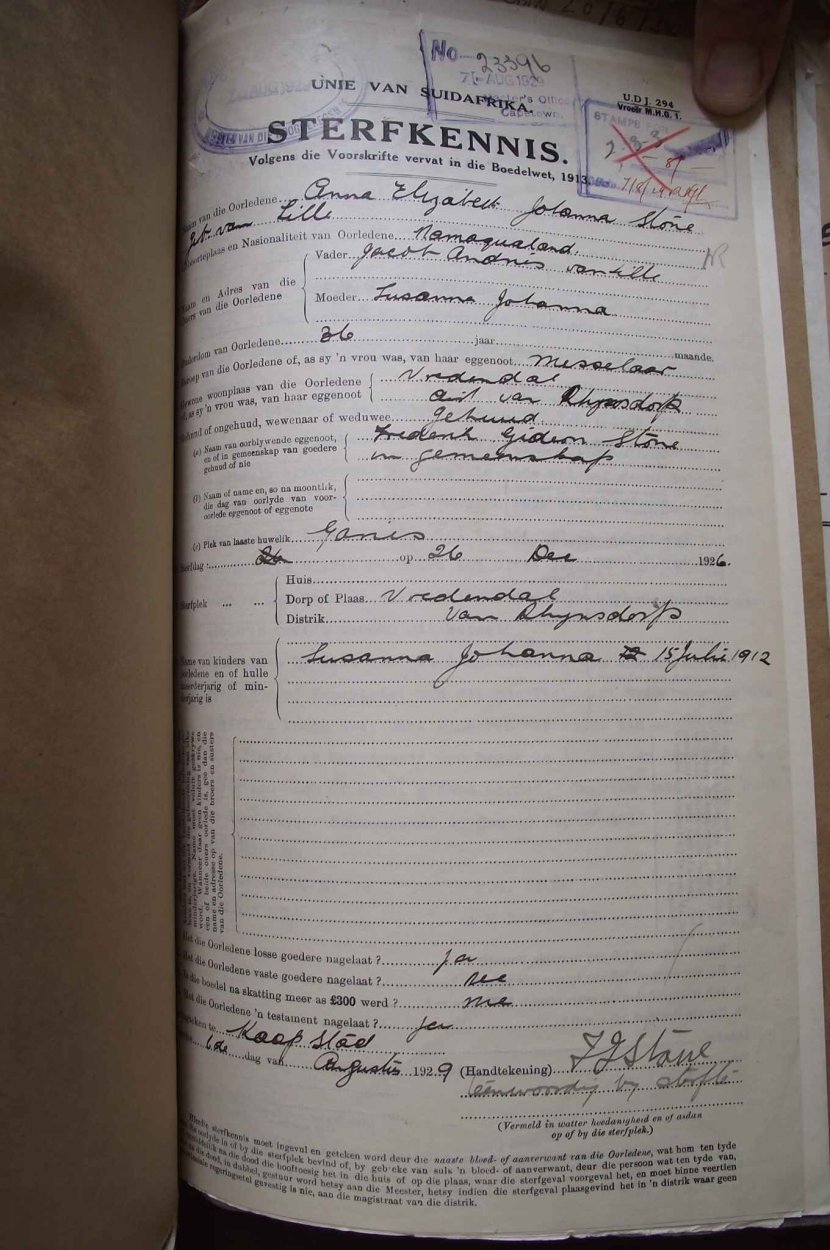 No 23396
7 - AUG 1929
Master's Office
Capetown
UNIE VAN SUIDAFRIKA.
U.D.J. 294
Vroeër M.H.G. 1.
STERFKENNIS.
Volgens die Voorskrifte vervat in die Boedelwet, 1913.
van die Oorledene Anna Elizabeth Johanna Stone
geb. van Lille
en Nasionaliteit van Oorledene Namaqualand.
en Adres van die
van die Oorledene
Vader Jacob Andries van Lille
Moeder Susanna Johanna
van Oorledene 36 jaar maande.
van die Oorledene of, as sy 'n vrou was, van haar eggenoot Messelaar
woonplaas van die Oorledene
as sy 'n vrou was, van haar eggenoot
Vredendal
dist van Rhynsdorp
of ongehuud, wewenaar of weduwee gehuud
(a) Naam van oorblywende eggenoot,
en of in gemeenskap van goedere
gehuud of nie
Frederik Gideon Stone
in gemeenskap
(b) Naam of name en, so na moontlik,
die dag van oorlyde van voor-
oorlede eggenoot of eggenote
(c) Plek van laaste huwelik Garies
op 26 Dec 1926.
Huis
Dorp of Plaas Vredendal
Distrik Van Rhynsdorp
Name van kinders van
oorledene en of hulle
meerderjarig of min-
derjarig is
Susanna Johanna 15 Julie 1912
name en adresse op van die broers en susters
van die Oorledene.
die Oorledene losse goedere nagelaat? ja
die Oorledene vaste goedere nagelaat? nee
die boedel na skatting meer as £300 werd? nee
die Oorledene 'n testament nagelaat? ja
te Kaap Stad
6de dag van Augustis 1929 (Handtekening) F G Stone
teenwoordig by sterfte
(Vermeld in watter hoedanigheid en of asdan
op of by die sterfplek.)
Hierdie sterfkennis moet ingevul en geteken word deur die naaste bloed- of aanverwant van die Oorledene, wat hom ten tyde
van die oorlyde in of by die sterfplek bevind of, by gebreke van sulk 'n bloed- of aanverwant, deur die persoon wat ten tyde van,
die dood die hooftoesig het in die huis of op die plaas, waar die sterfgeval voorgeval het, en moet binne veertien
die dood, in dubbel, gestuur word hetsy aan die Meester, hetsy indien die sterfgeval plaasgevind het in 'n distrik waar geen
gevestig is nie, aan die magistraat van die distrik.